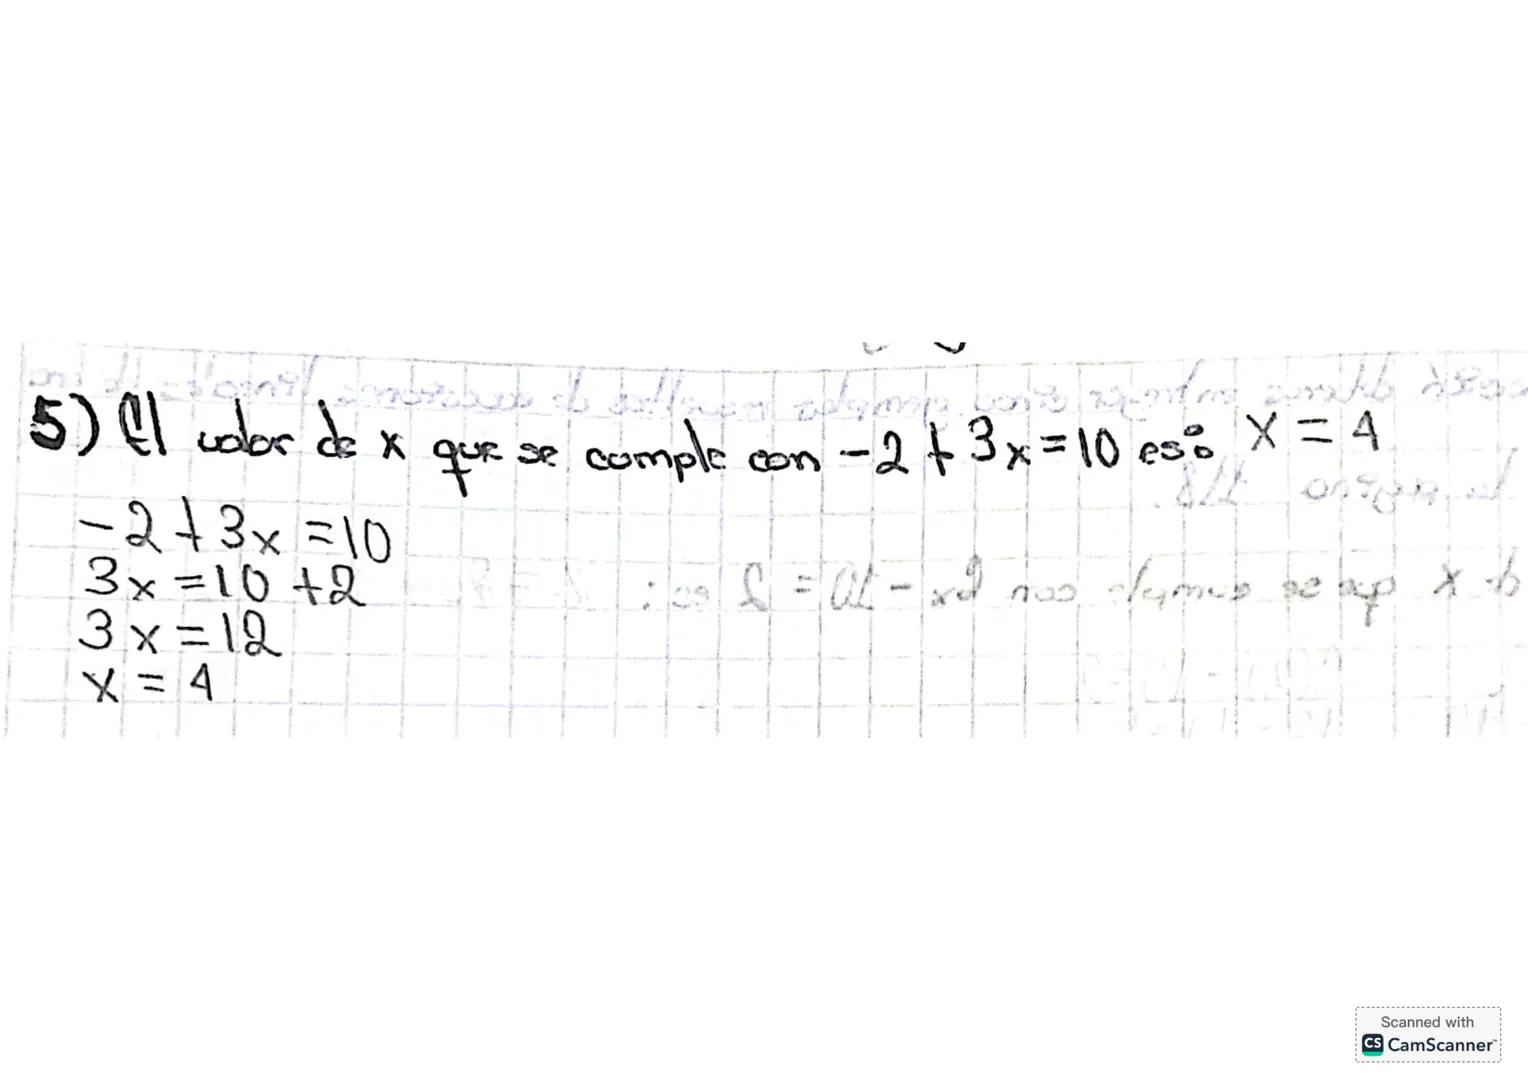 5) El valor de x que se cumple con -2 + 3x = 10 es: x = 4
-2 + 3x = 10
3x = 10 + 2
3x = 12
x = 4
Scanned with
CS CamScanner